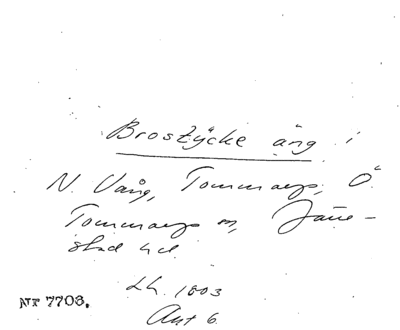 Brostycke äng i
N. Vång, Tommarps, Ö.
Tommarps sn, Järre-
stad hd.
Lh. 1803
Akt 6.
Nr 7703.